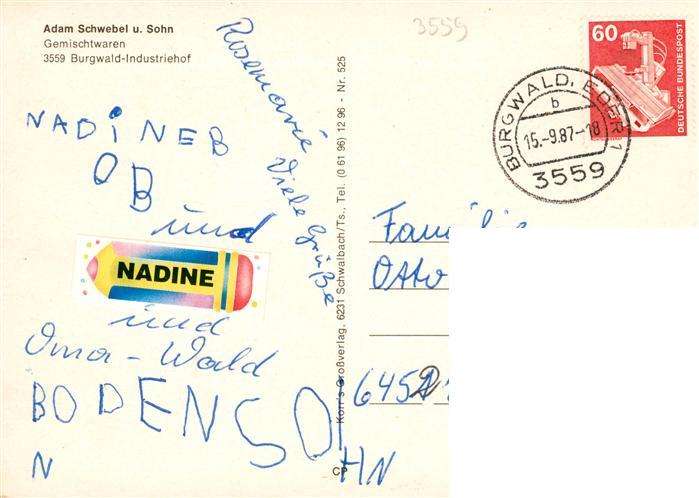 Adam Schwebel u. Sohn
Gemischtwaren
3559 Burgwald-Industriehof
3559
60
DEUTSCHE BUNDESPOST
BURGWALD, EDER 1
b
15.-9.87-18
3559
Rosemarie
Viele Grüße
NADiNEB
OB
und
NADINE
und
Oma-Wald
BODENSO
HN
N
Korr's Großverlag, 6231 Schwalbach/Ts., Tel. (0 61 96) 12 96 - Nr. 525
CP
Familie
Otto
6452